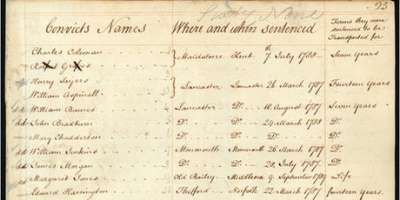 95
Lady Jane
Convicts Names Where and when sentenced Terms they were sentenced to be Transported for
Charles Coleman Maidstone Kent 7 July 1788 Seven Years
Henry Sayers
William Aspinall Lancaster Lancaster 26 March 1787 Fourteen Years
William Barnes Lancaster Do. 11 August 1787 Seven Years
dd John Bradburn Do. Do. 24 March 1788 Do.
Mary Chadderton Do. Do. Do. Do.
dd William Jenkins Monmouth Monmouth 26 March 1787 Do.
dd James Morgan Do. Do. 20 July 1787 Do.
dd Margaret Jones Old Bailey Middlesex 9 September 1789 Life
Edward Harrington Thetford Norfolk 22 March 1787 fourteen Years